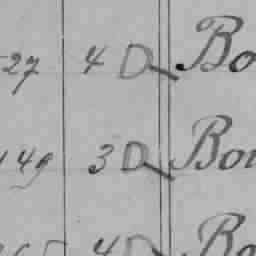 27 4 D Bo
149 3 D Bou
4 D Bo